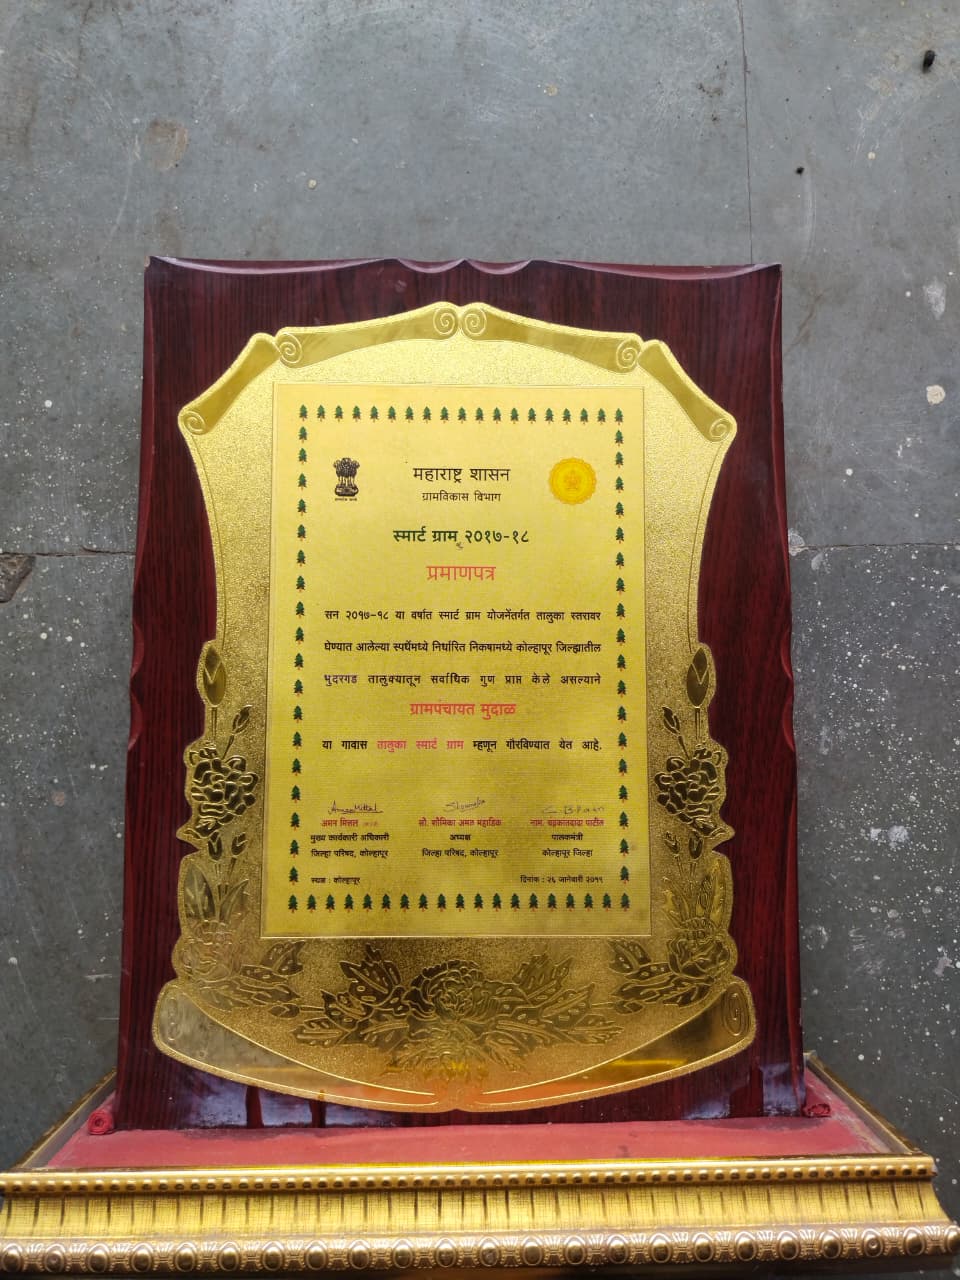 महाराष्ट्र शासन
ग्रामविकास विभाग
स्मार्ट ग्राम २०१७-१८
प्रमाणपत्र
सन २०१७-१८ या वर्षात स्मार्ट ग्राम योजनेंतर्गत तालुका स्तरावर
घेण्यात आलेल्या स्पर्धेमध्ये निर्धारित निकषामध्ये कोल्हापूर जिल्ह्यातील
भुदरगड तालुक्यातून सर्वाधिक गुण प्राप्त केले असल्याने
ग्रामपंचायत मुदाळ
या गावास तालुका स्मार्ट ग्राम म्हणून गौरविण्यात येत आहे.
अमन मित्तल सौ. शौमिका अमल महाडिक नाम. चंद्रकांतदादा पाटील
मुख्य कार्यकारी अधिकारी अध्यक्ष पालकमंत्री
जिल्हा परिषद, कोल्हापूर जिल्हा परिषद, कोल्हापूर कोल्हापूर जिल्हा
स्थळ : कोल्हापूर दिनांक : २६ जानेवारी २०१९